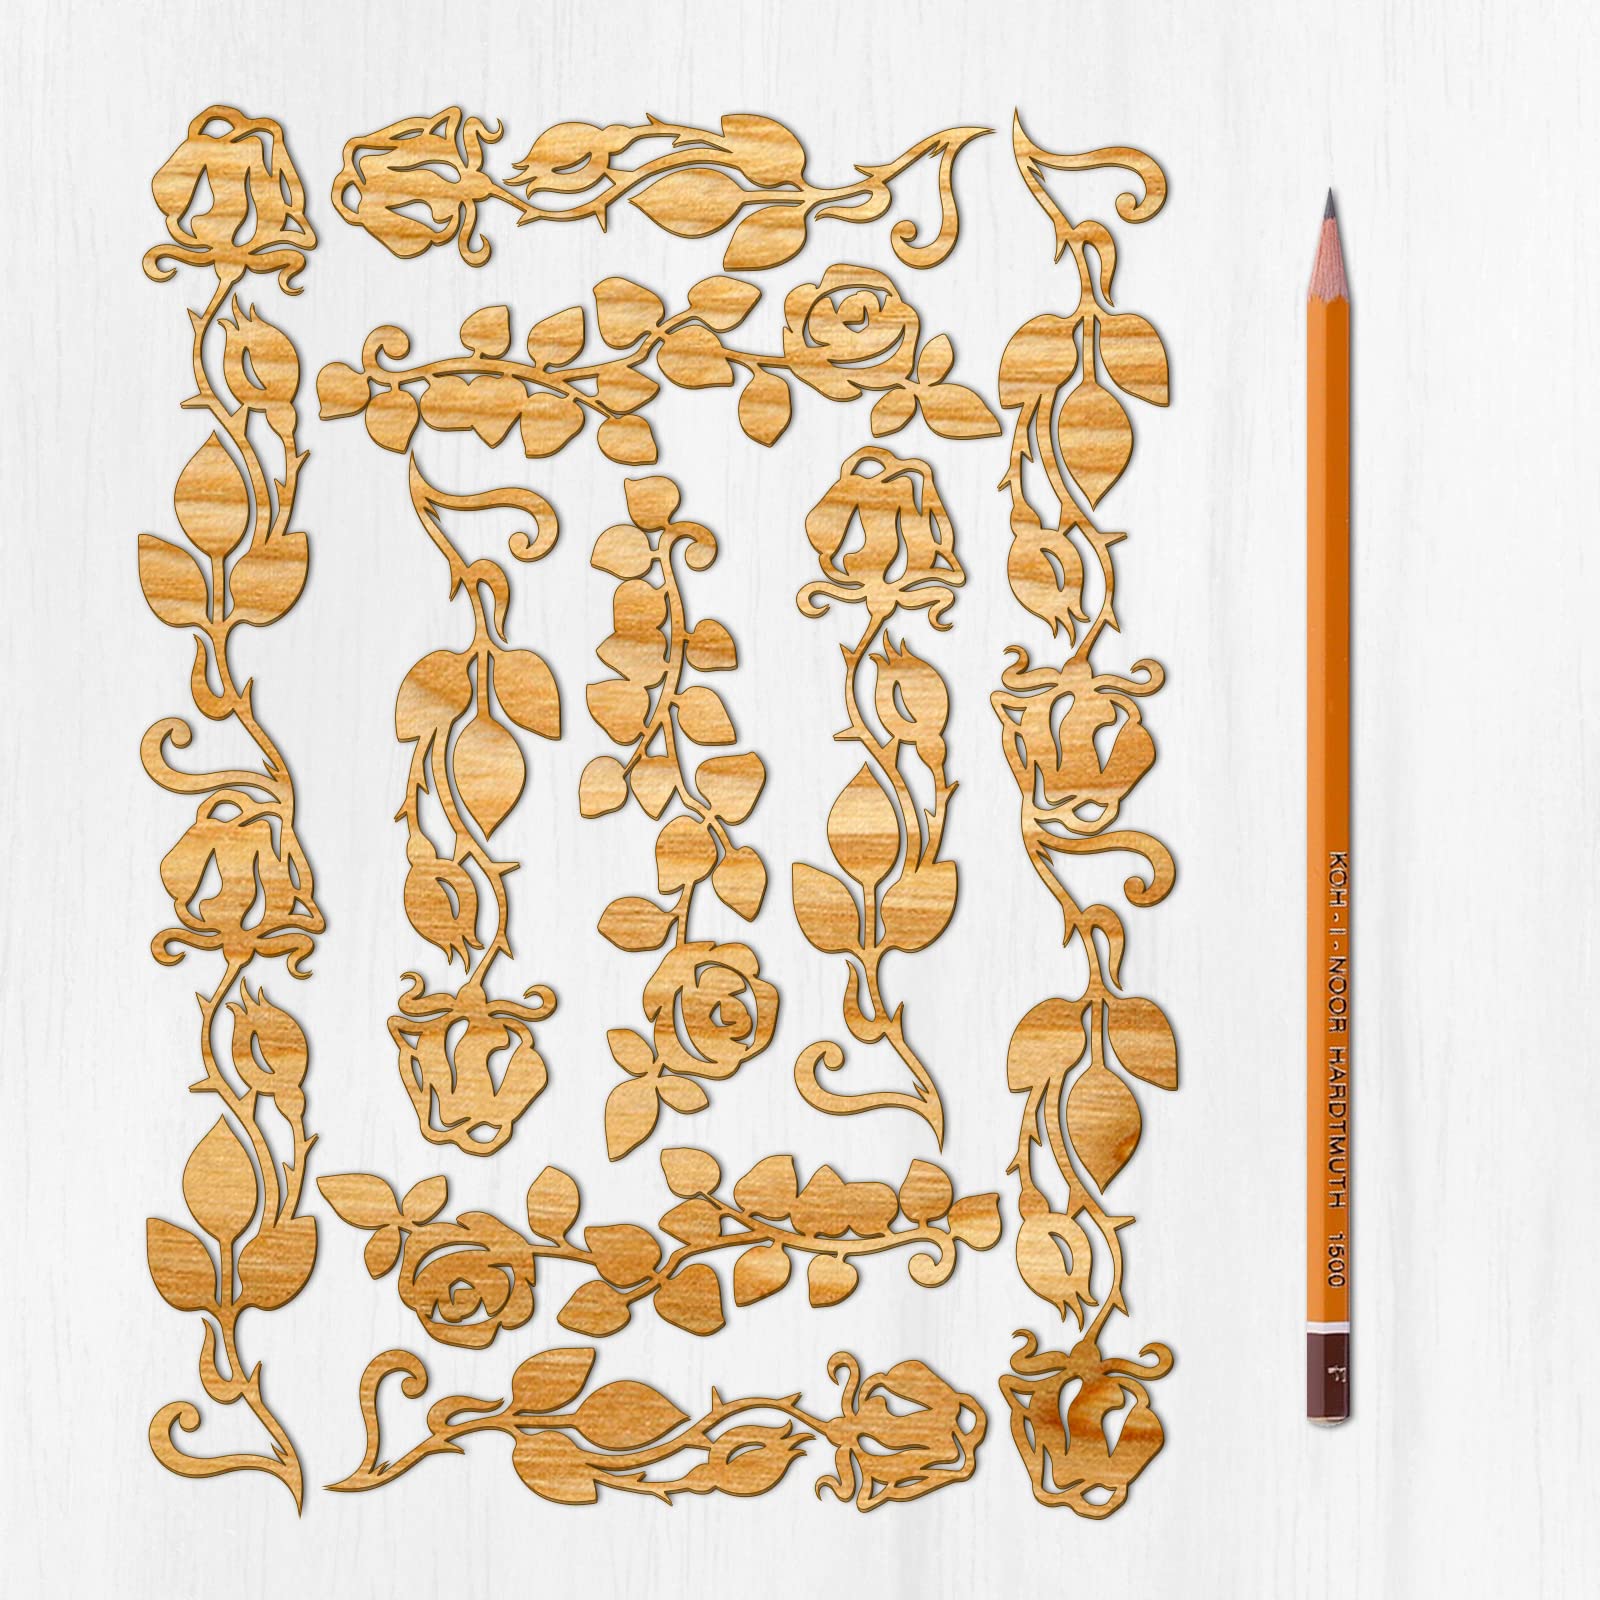 KOH-I-NOOR HARDTMUTH 1500 F